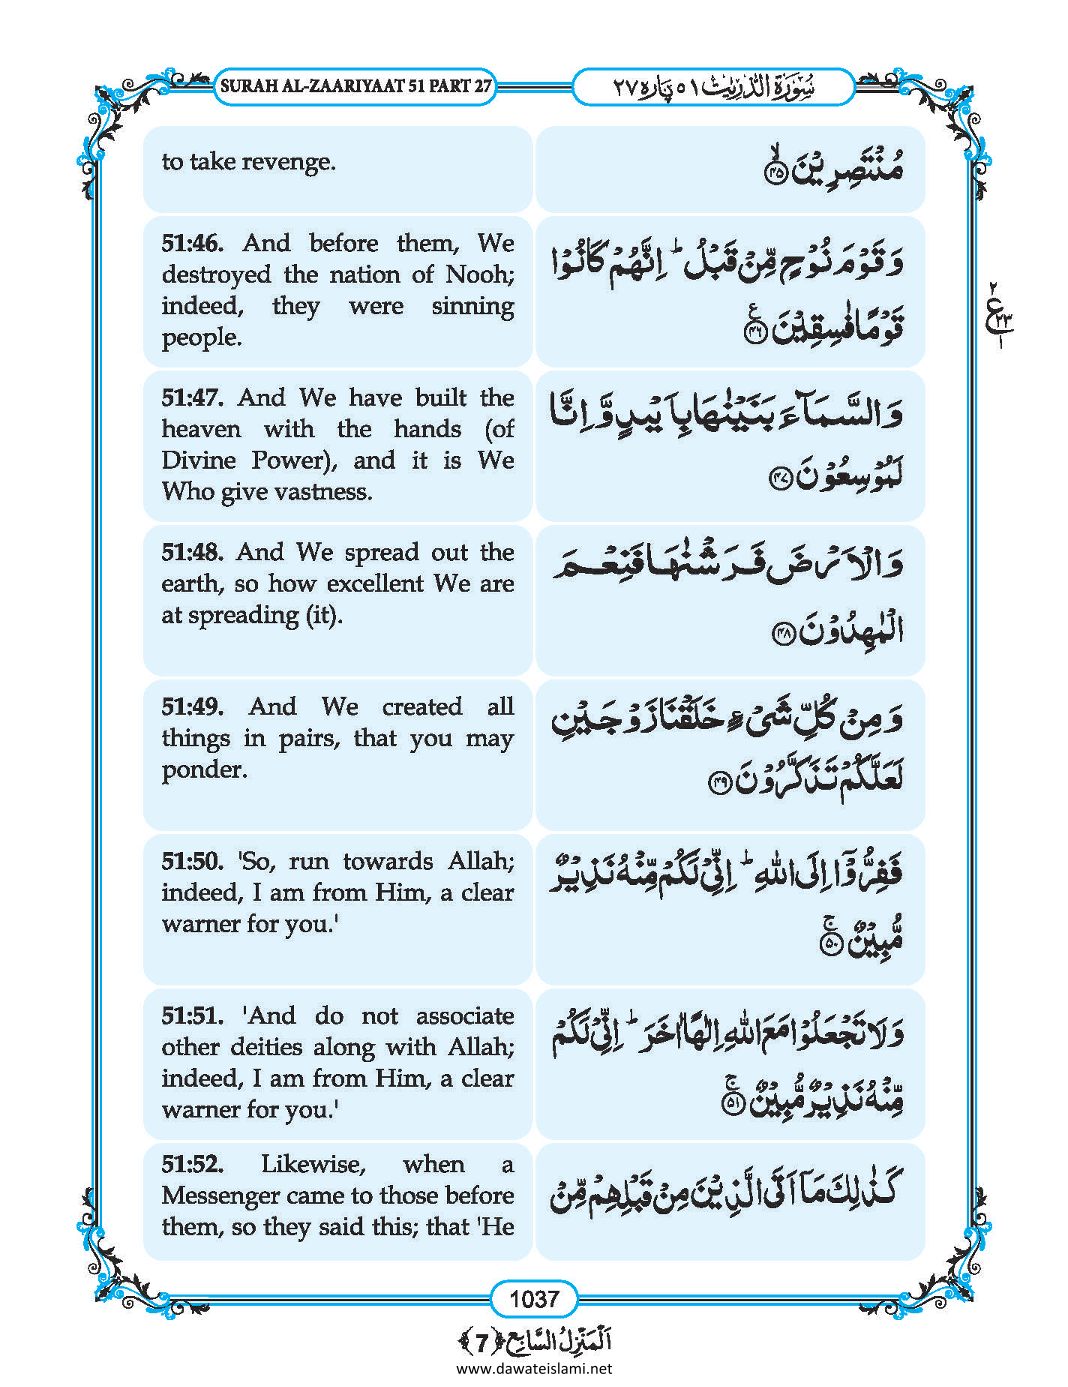 SURAH AL-ZAARIYAAT 51 PART 27
سُوۡرَۃُ الذّٰرِیٰت ۵۱ پارہ ۲۷
to take revenge.
مُنۡتَصِرِیۡنَ ﴿ۙ۴۵﴾
51:46. And before them, We
destroyed the nation of Nooh;
indeed, they were sinning
people.
وَ قَوۡمَ نُوۡحٍ مِّنۡ قَبۡلُ ؕ اِنَّہُمۡ کَانُوۡا
قَوۡمًا فٰسِقِیۡنَ ﴿۴۶﴾ ع
۲
ع
۲۳
۱
51:47. And We have built the
heaven with the hands (of
Divine Power), and it is We
Who give vastness.
وَ السَّمَآءَ بَنَیۡنٰہَا بِاَیۡىدٍ وَّ اِنَّا
لَمُوۡسِعُوۡنَ ﴿۴۷﴾
51:48. And We spread out the
earth, so how excellent We are
at spreading (it).
وَ الۡاَرۡضَ فَرَشۡنٰہَا فَنِعۡمَ
الۡمٰہِدُوۡنَ ﴿۴۸﴾
51:49. And We created all
things in pairs, that you may
ponder.
وَ مِنۡ کُلِّ شَیۡءٍ خَلَقۡنَا زَوۡجَیۡنِ
لَعَلَّکُمۡ تَذَکَّرُوۡنَ ﴿۴۹﴾
51:50. 'So, run towards Allah;
indeed, I am from Him, a clear
warner for you.'
فَفِرُّوۡۤا اِلَی اللّٰہِ ؕ اِنِّیۡ لَکُمۡ مِّنۡہُ نَذِیۡرٌ
مُّبِیۡنٌ ﴿ۚ۵۰﴾
51:51. 'And do not associate
other deities along with Allah;
indeed, I am from Him, a clear
warner for you.'
وَ لَا تَجۡعَلُوۡا مَعَ اللّٰہِ اِلٰـہًا اٰخَرَ ؕ اِنِّیۡ لَکُمۡ
مِّنۡہُ نَذِیۡرٌ مُّبِیۡنٌ ﴿ۚ۵۱﴾
51:52. Likewise, when a
Messenger came to those before
them, so they said this; that 'He
کَذٰلِکَ مَاۤ اَتَی الَّذِیۡنَ مِنۡ قَبۡلِہِمۡ مِّنۡ
1037
اَلۡمَنۡزِلُ السَّابِع ﴿7﴾
www.dawateislami.net